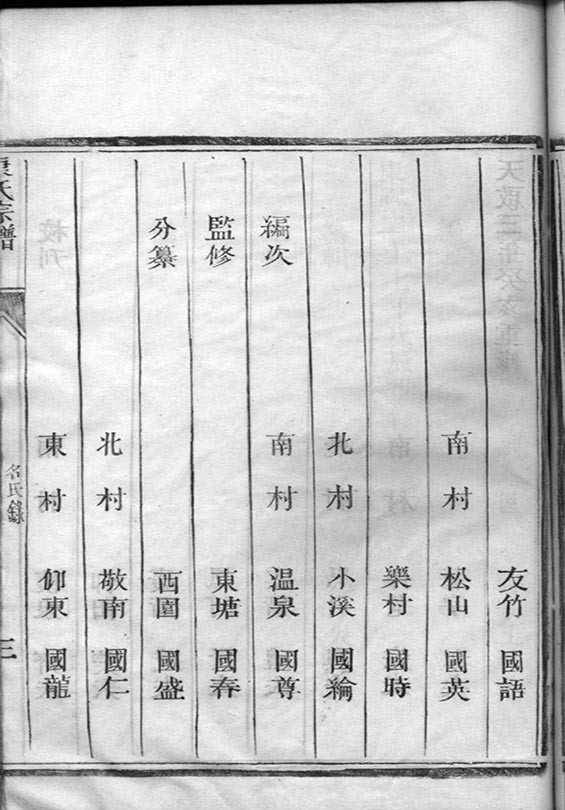 友竹 國語
南村 松山 國英
樂村 國時
北村 小溪 國綸
編次 南村 温泉 國尊
監修 東塘 國春
分纂 西園 國盛
北村 敬南 國仁
東村 仰東 國龍
氏宗譜
名氏錄
三